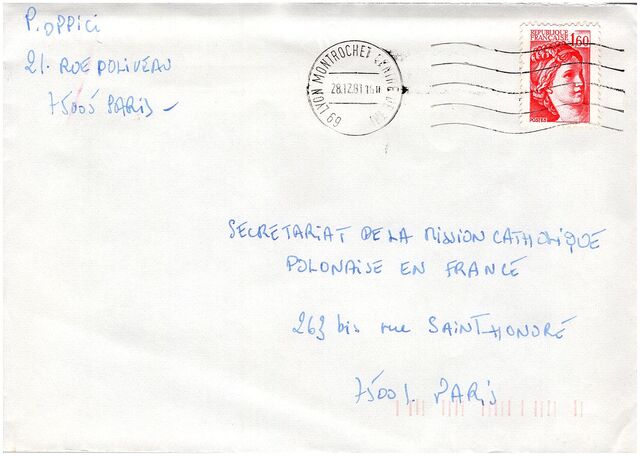 P. OPPICI
21. RUE POLIVEAU
75005 PARIS
69 LYON MONTROCHET
28.12.81 16H
REPUBLIQUE
FRANCAISE
1,60
POSTES
SECRETARIAT DE LA MISSION CATHOLIQUE
POLONAISE EN FRANCE
263 bis rue SAINT HONORÉ
75001. PARIS